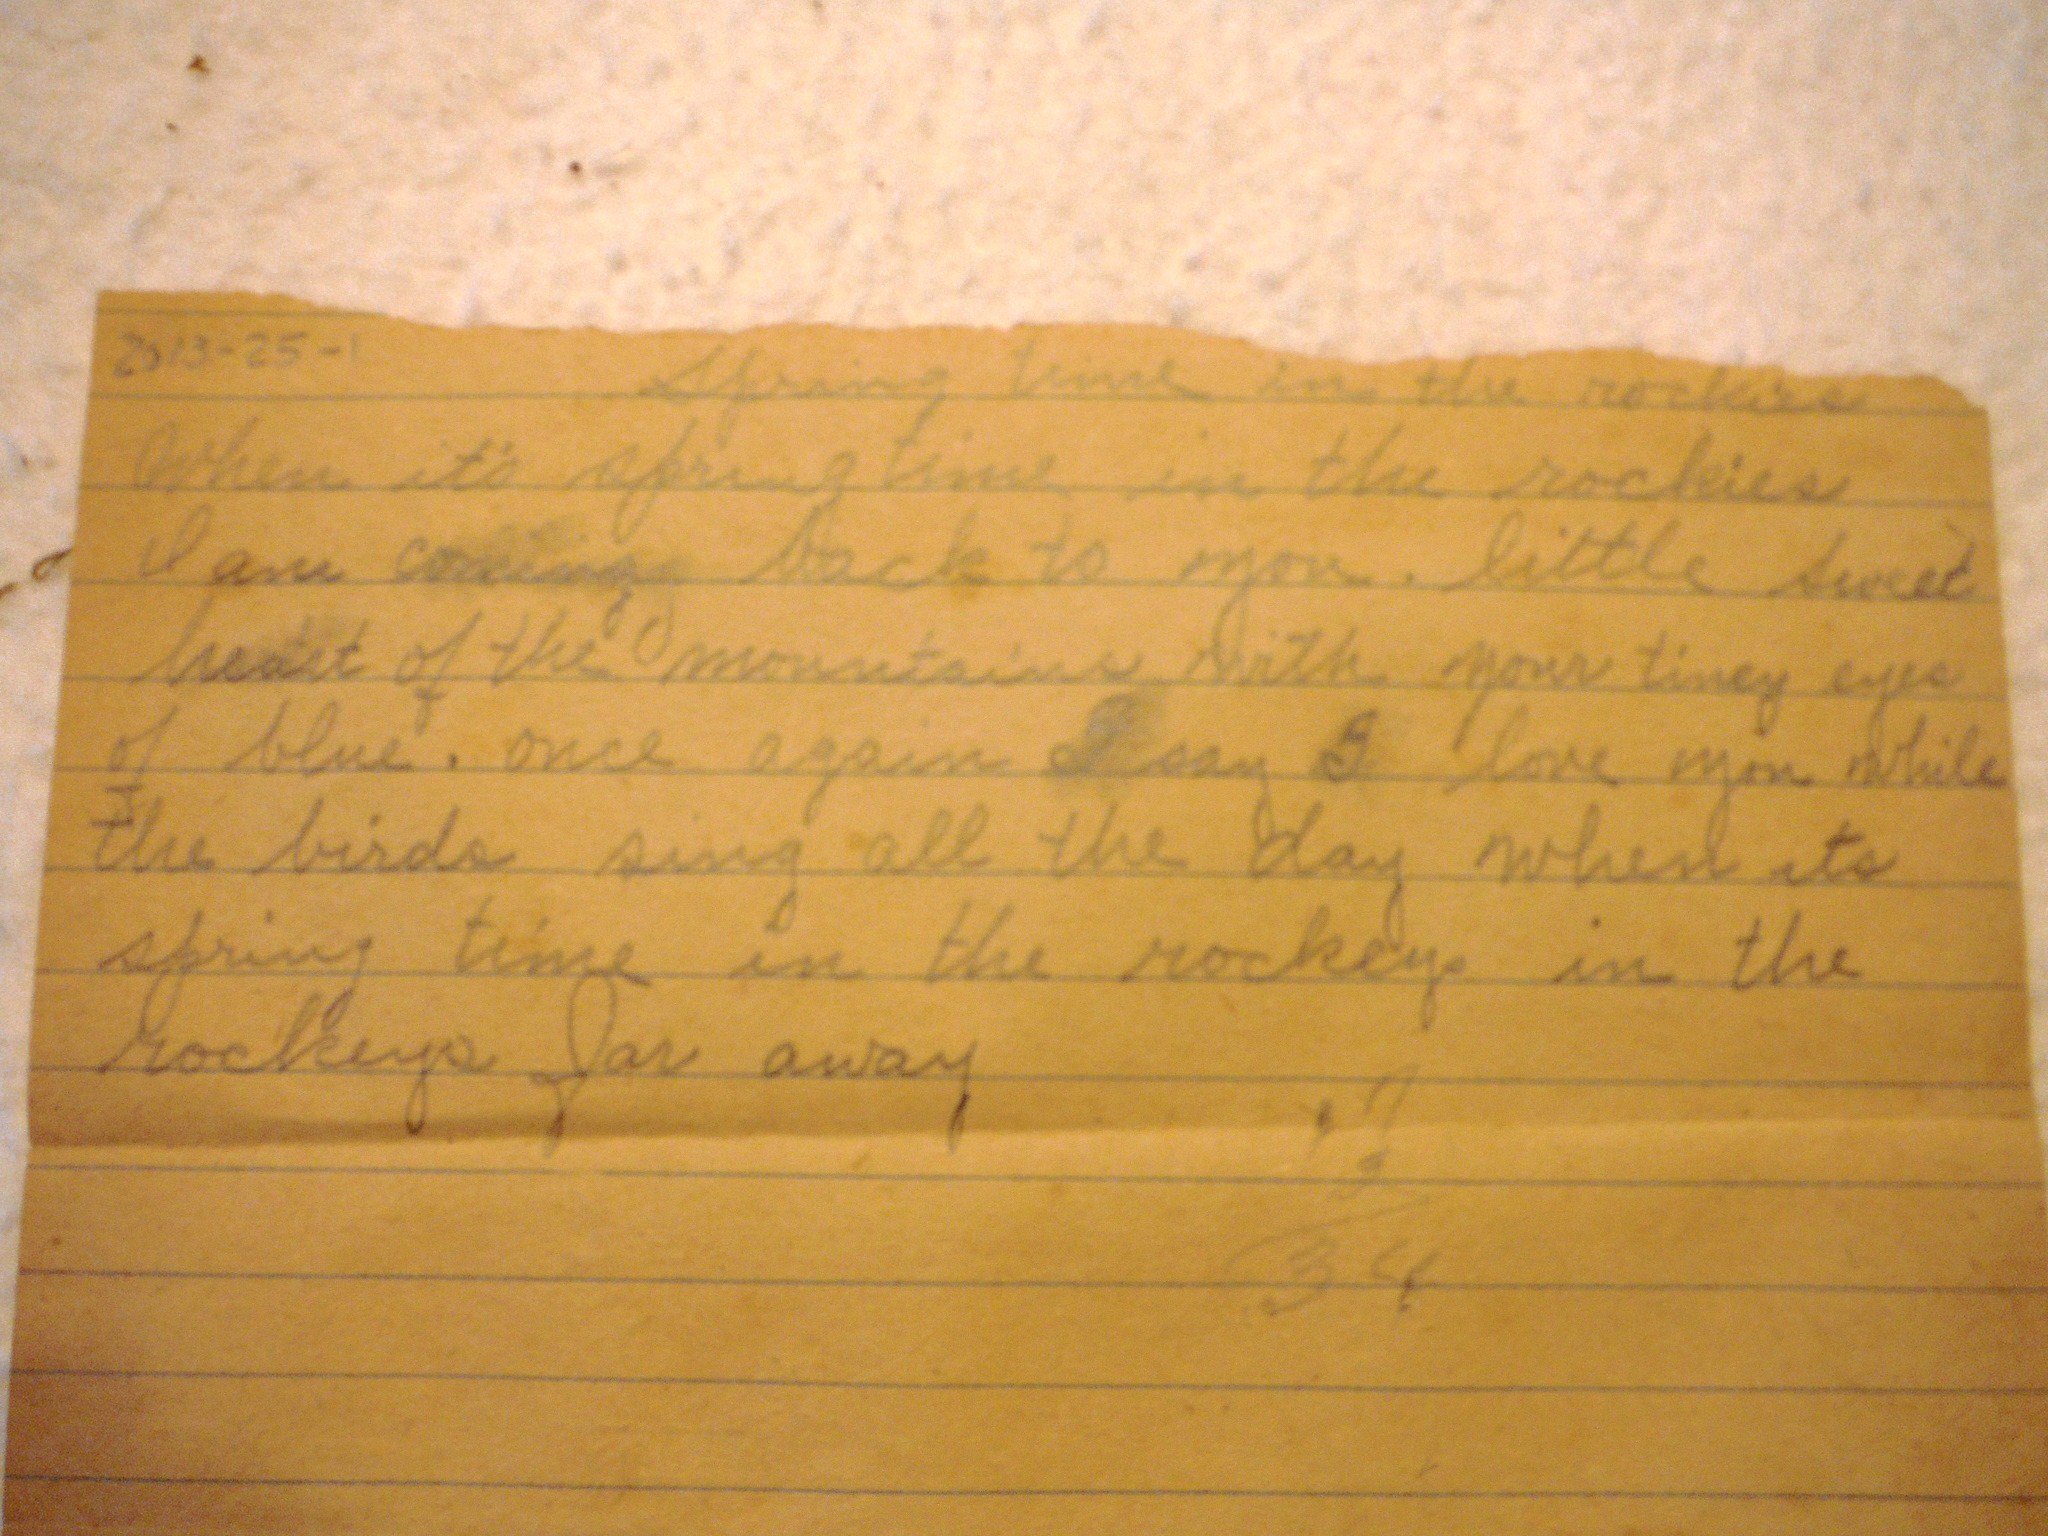 2013-25-1
Spring time in the rockies
When it's spring time in the rockies
I am coming back to you. little sweet
heart of the mountains with your tiney eyes
of blue. once again I say I love you while
the birds sing all the day when its
spring time in the rockeys in the
rockeys far away
34